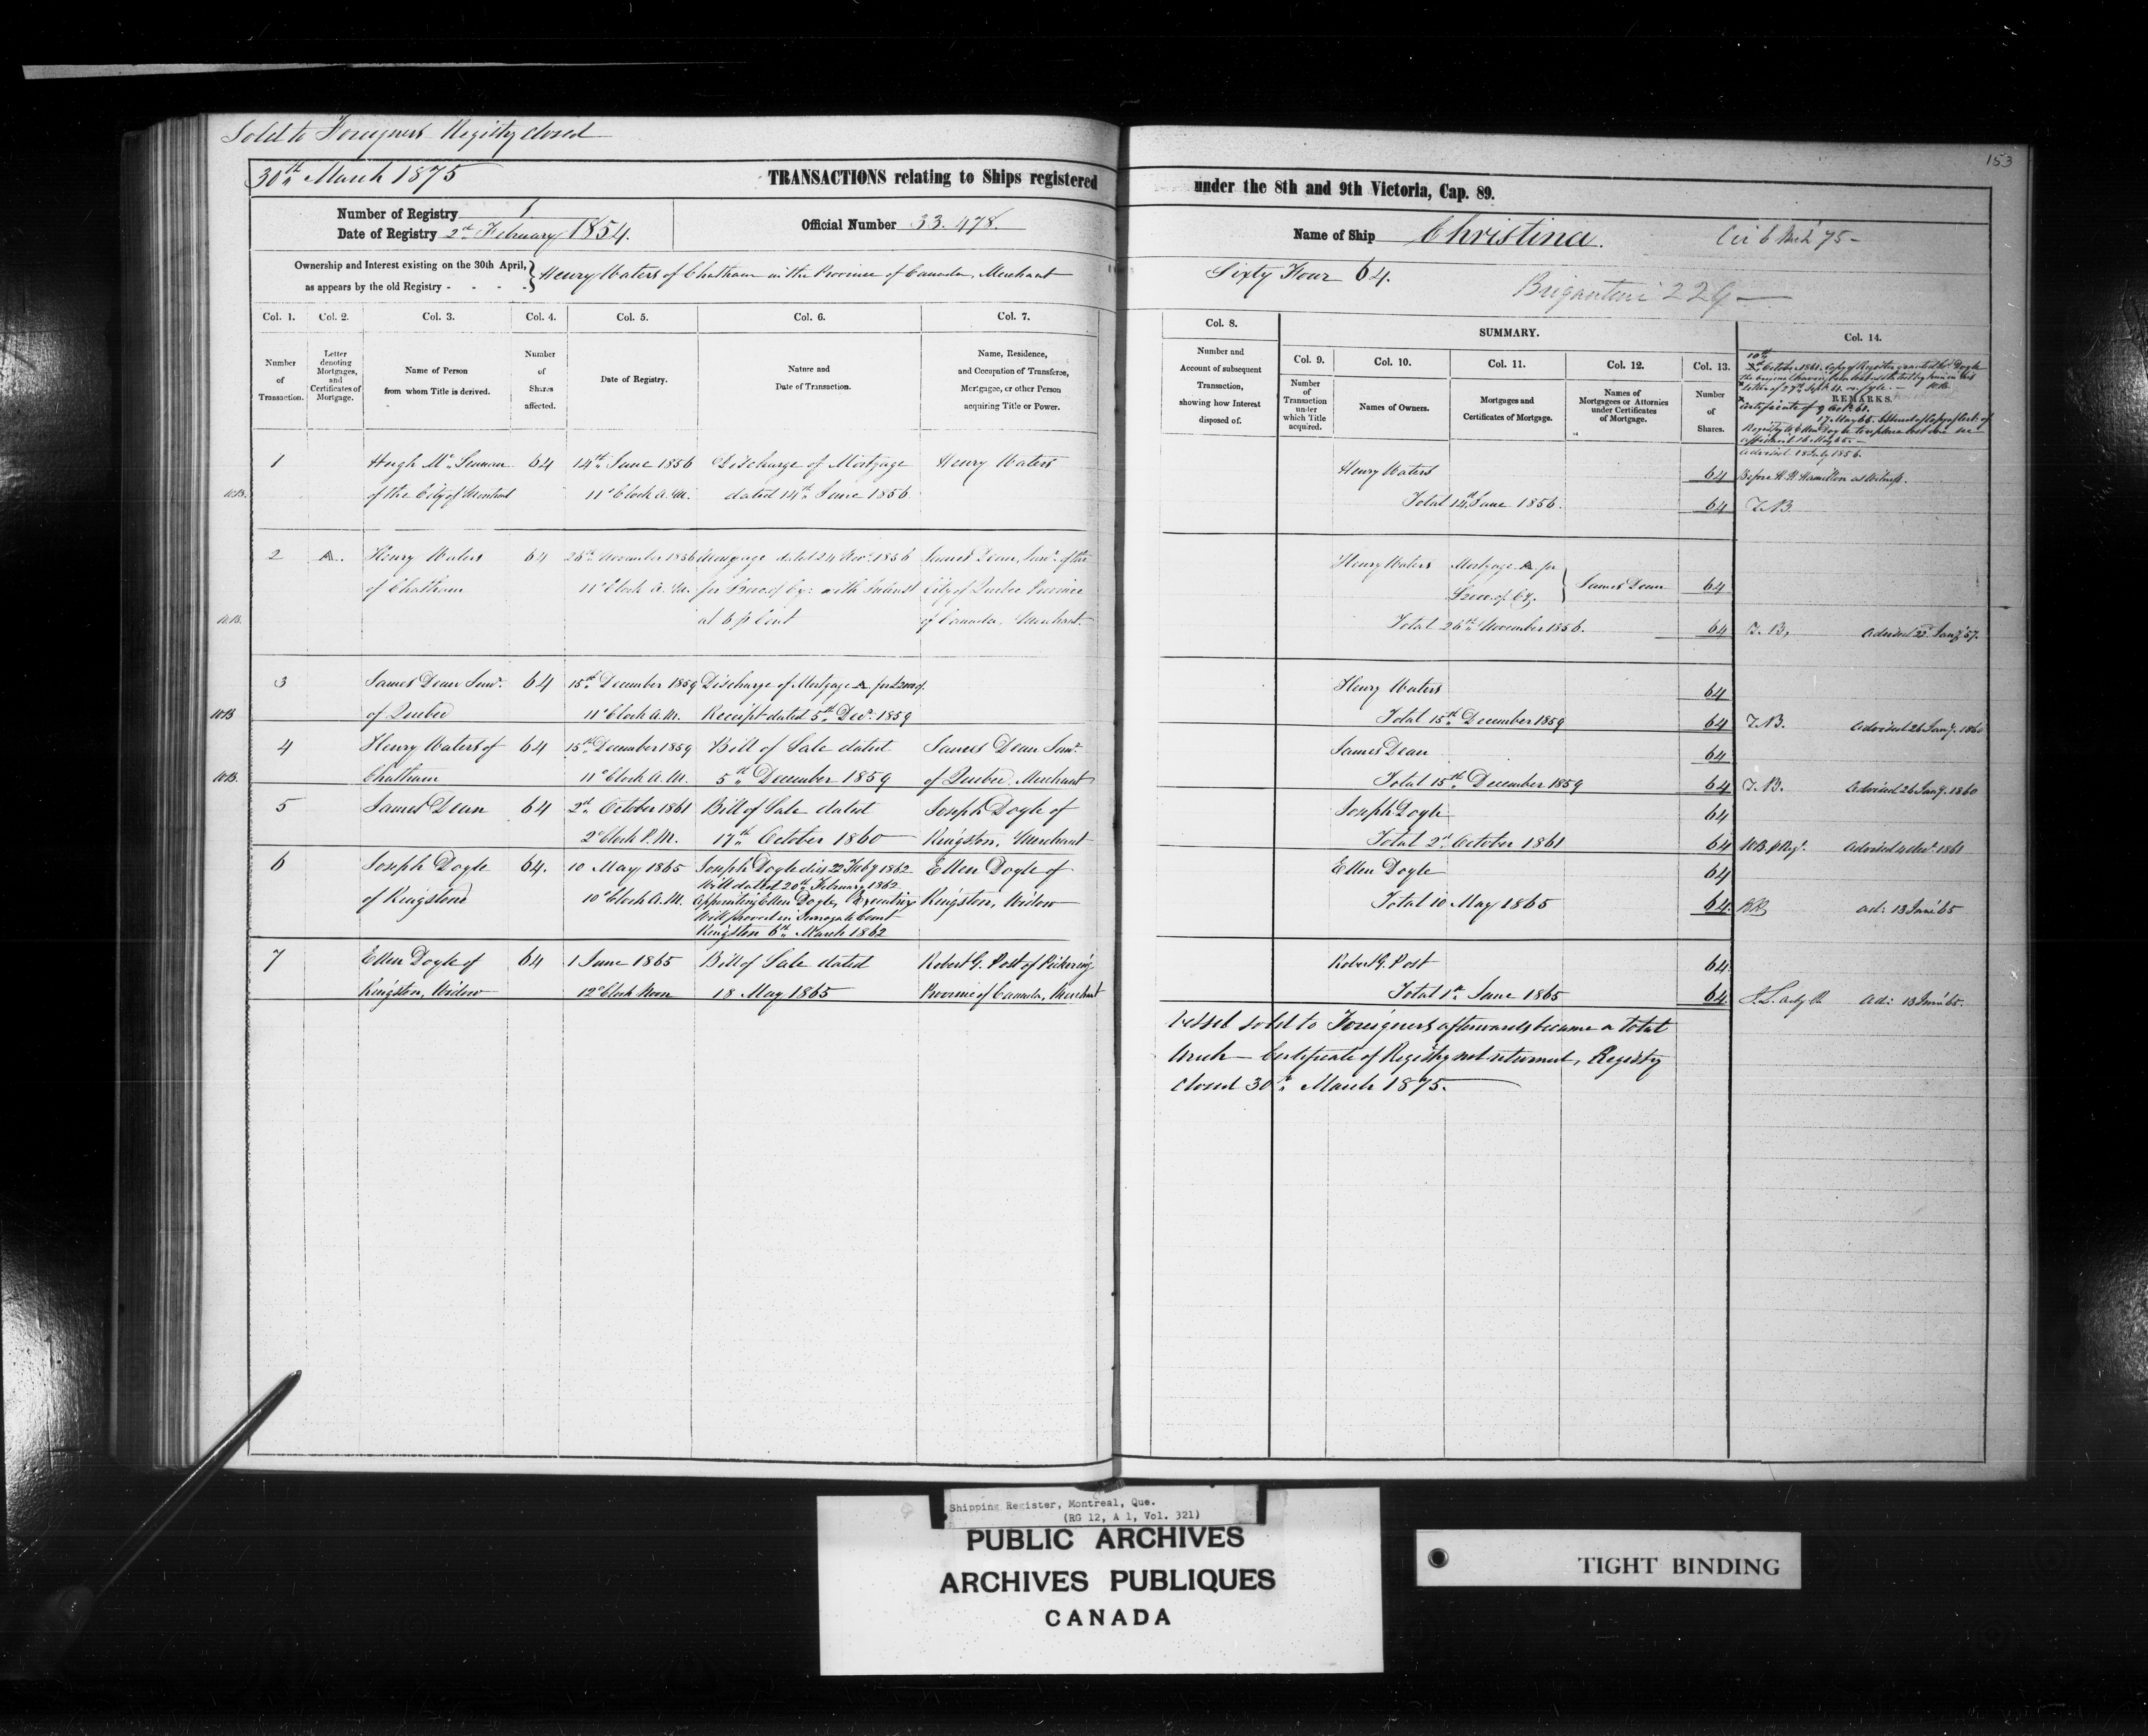 Sold to Foreigners Registry closed
30th March 1875
153
TRANSACTIONS relating to Ships registered under the 8th and 9th Victoria, Cap. 89.
Number of Registry 1
Date of Registry 2nd February 1854.
Official Number 33.478.
Name of Ship Christina.
Brigantine 229
Ownership and Interest existing on the 30th April, as appears by the old Registry - - - - Henry Waters of Chatham in the Province of Canada, Merchant Sixty Four 64.
Col. 1. Col. 2. Col. 3. Col. 4. Col. 5. Col. 6. Col. 7. Col. 8. SUMMARY. Col. 14.
Col. 9. Col. 10. Col. 11. Col. 12. Col. 13.
Number of Transaction.
Letter denoting Mortgages, and Certificates of Mortgage.
Name of Person from whom Title is derived.
Number of Shares affected.
Date of Registry.
Nature and Date of Transaction.
Name, Residence, and Occupation of Transferee, Mortgagee, or other Person acquiring Title or Power.
Number and Account of subsequent Transaction, showing how Interest disposed of.
Number of Transaction under which Title acquired.
Names of Owners.
Mortgages and Certificates of Mortgage.
Names of Mortgagees or Attornies under Certificates of Mortgage.
Number of Shares.
REMARKS.
10th October 1861. Copy of Register granted
letter of 27th Sept. 61 on file.
Certificate of 9 Oct. 60.
affidavit 16 May 65.
Advised 18 July 1856.
1 Hugh McLennan 64 14th June 1856 Discharge of Mortgage Henry Waters Henry Waters 64 Before H. H. Hamilton as Witness.
W.B. of the City of Montreal 11 o'Clock A.M. dated 14th June 1856 Total 14th June 1856. 64 T.B.
2 A. Henry Waters 64 26th November 1856 Mortgage dated 24 Nov. 1856 James Dean, Senr. of the Henry Waters Mortgage A for James Dean 64
of Chatham 11 o'Clock A.M. for £2000 of Cy: with Interest City of Quebec Province £2000 of Cy.
W.B. at 6 p Cent of Canada. Merchant. Total 26th November 1856. 64 T.B. Advised 23 Jany. 57.
3 James Dean Senr. 64 15th December 1859 Discharge of Mortgage A for £2000 Henry Waters 64
W.B. of Quebec 11 o'Clock A.M. Receipt dated 5th Decr. 1859 Total 15th December 1859 64 T.B. Advised 26 Jany. 1860
4 Henry Waters of 64 15th December 1859 Bill of Sale dated James Dean Senr. James Dean 64
W.B. Chatham 11 o'Clock A.M. 5th December 1859 of Quebec Merchant Total 15th December 1859 64 T.B. Advised 26 Jany. 1860
5 James Dean 64 2nd October 1861 Bill of Sale dated Joseph Doyle of Joseph Doyle 64
2 o'Clock P.M. 17th October 1860 Kingston, Merchant Total 2nd October 1861 64 Advised 4 Decr. 1861
6 Joseph Doyle 64. 10 May 1865 Joseph Doyle died 22 Feby 1862 Ellen Doyle of Ellen Doyle 64
Will dated 20th February 1862
of Kingston 10 o'Clock A.M. Appointing Ellen Doyle, Executrix Kingston, Widow Total 10 May 1865 64. ad: 13 June 65
Will proved in Surrogate Court
Kingston 6th March 1862
7 Ellen Doyle of 64 1 June 1865 Bill of Sale dated Robert G. Post of Pickering Robert G. Post 64
Kingston, Widow 12 o'Clock Noon 18 May 1865 Province of Canada, Merchant Total 1st June 1865 64. ad: 13 June 65.
Vessel sold to Foreigners afterwards became a total
Wreck - Certificate of Registry not returned, Registry
closed 30th March 1875.
Shipping Register, Montreal, Que.
(RG 12, A 1, Vol. 321)
PUBLIC ARCHIVES
ARCHIVES PUBLIQUES
CANADA
TIGHT BINDING